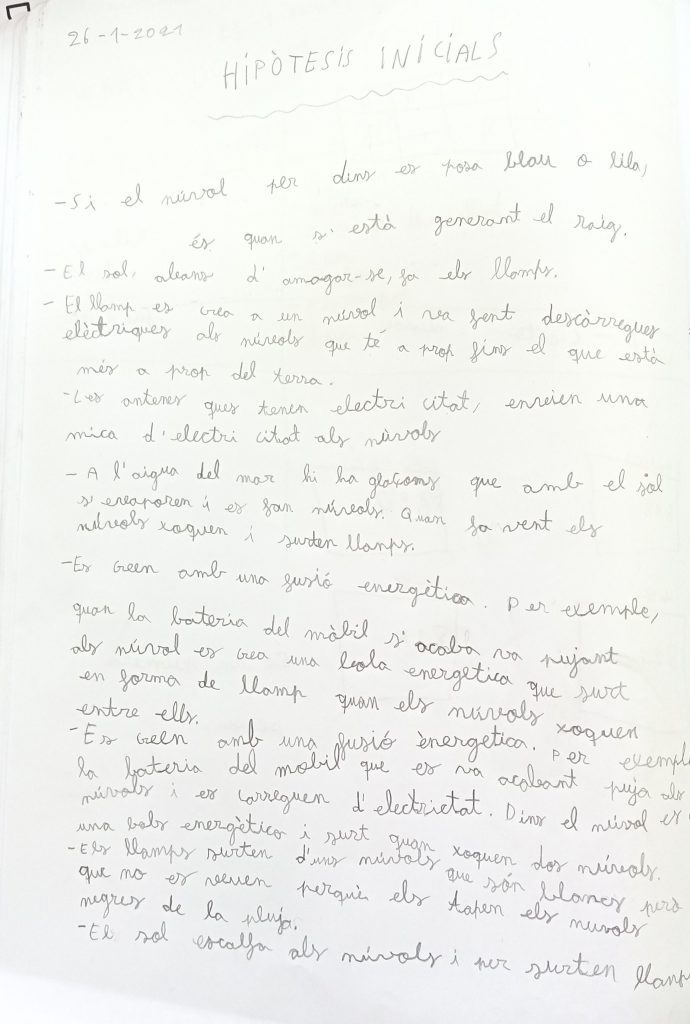 26-1-2021
HIPÒTESIS INICIALS
- Si el núvol per dins es posa blau o lila,
és quan s'està generant el raig.
- El sol, abans d'amagar-se, fa els llamps.
- El llamp es crea a un núvol i va fent descàrregues
elèctriques als núvols que té a prop fins el que està
més a prop del terra.
- Les antenes ques tenen electri citat, envien una
mica d'electri citat als núvols
- A l'aigua del mar hi ha glaçoms que amb el sol
s'evaporen i es fan núvols. Quan fa vent els
núvols xoquen i surten llamps.
- Es creen amb una fusió energètica. Per exemple,
quan la bateria del mòbil s'acaba va pujant
als núvol es crea una bola energètica que surt
en forma de llamp quan els núvols xoquen
entre ells.
- Es creen amb una fusió ènergètica. Per exempl
la bateria del mobil que es va acabant puja als
núvols i es carreguen d'electrictat. Dins el núvol es
una bols energètico i surt quan xoquen dos núvols.
- Els llamps surten d'uns núvols que són blancs però
que no es veuen perquè els tapen els nuvols
negres de la pluja.
- El sol escalfa als núvols i per surten llamp